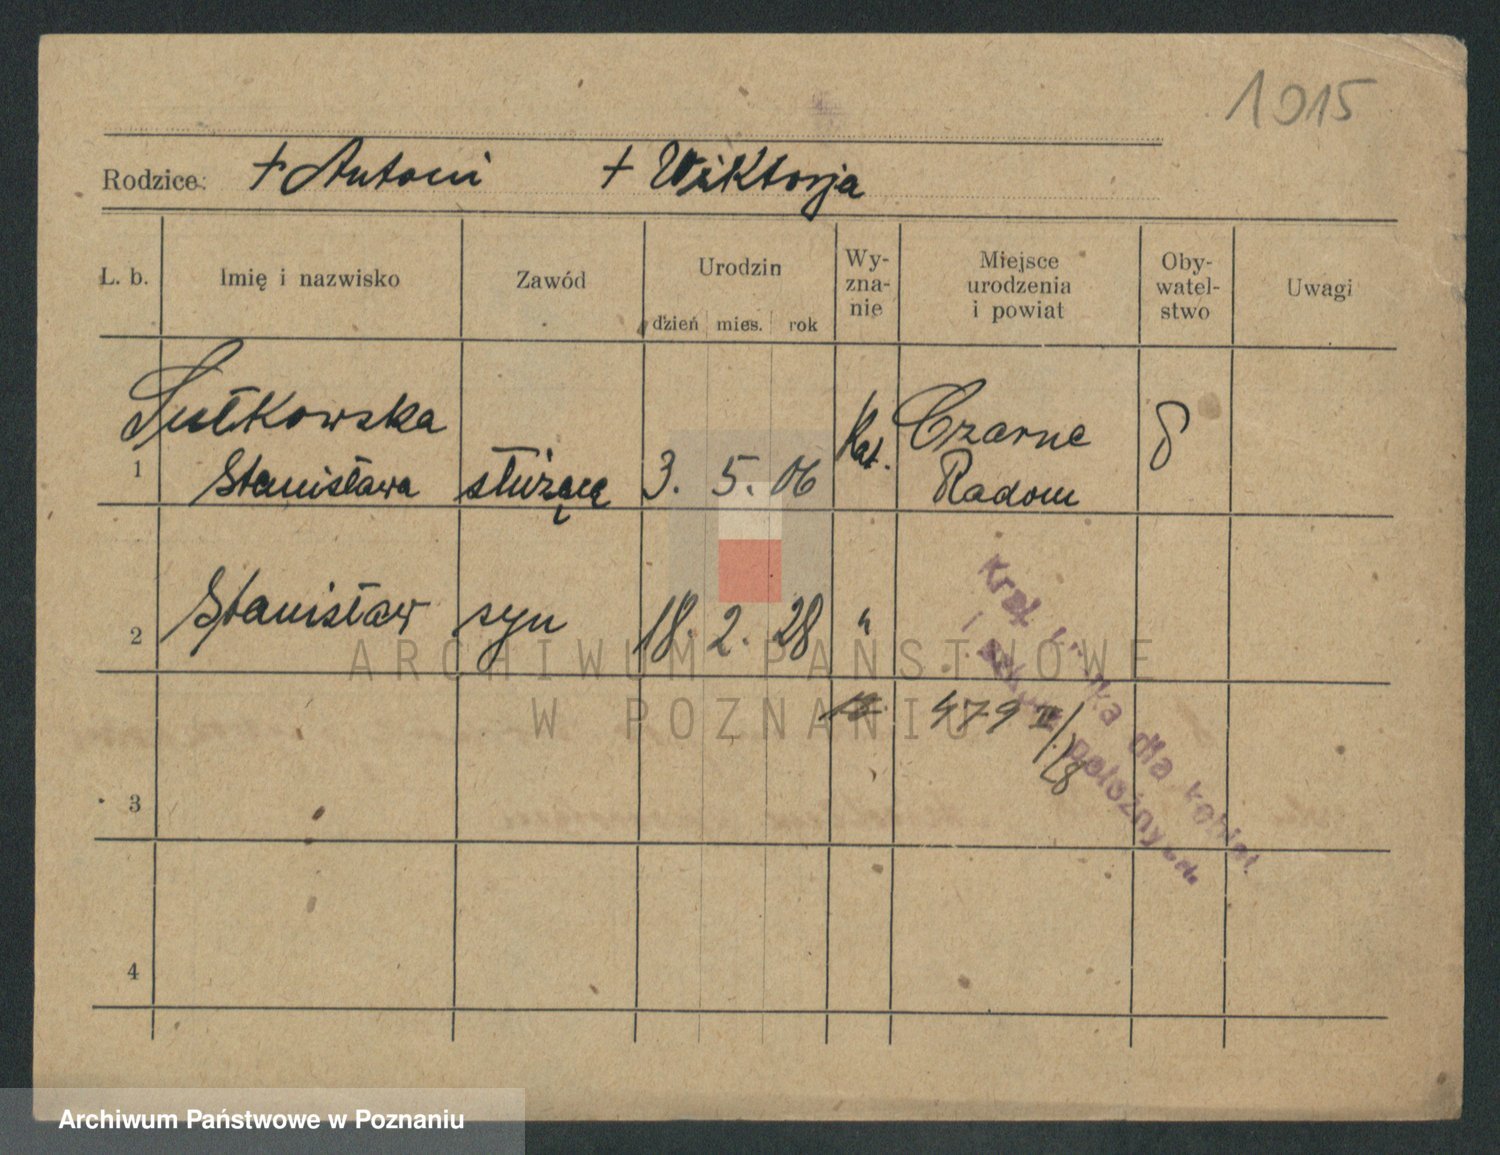 1015
Rodzice: + Antoni + Wiktorja
L. b. Imię i nazwisko Zawód Urodzin dzień mies. rok Wy-zna-nie Miejsce urodzenia i powiat Oby-watel-stwo Uwagi
Sułkowska
1 Stanisława służącą 3. 5. 06 Kat. Czarne Radom
2 Stanisław syn 18. 2. 28 "
479 II/28
3
4
Kraj. dla kobiet
i położnych.
ARCHIWUM PAŃSTWOWE
W POZNANIU
Archiwum Państwowe w Poznaniu